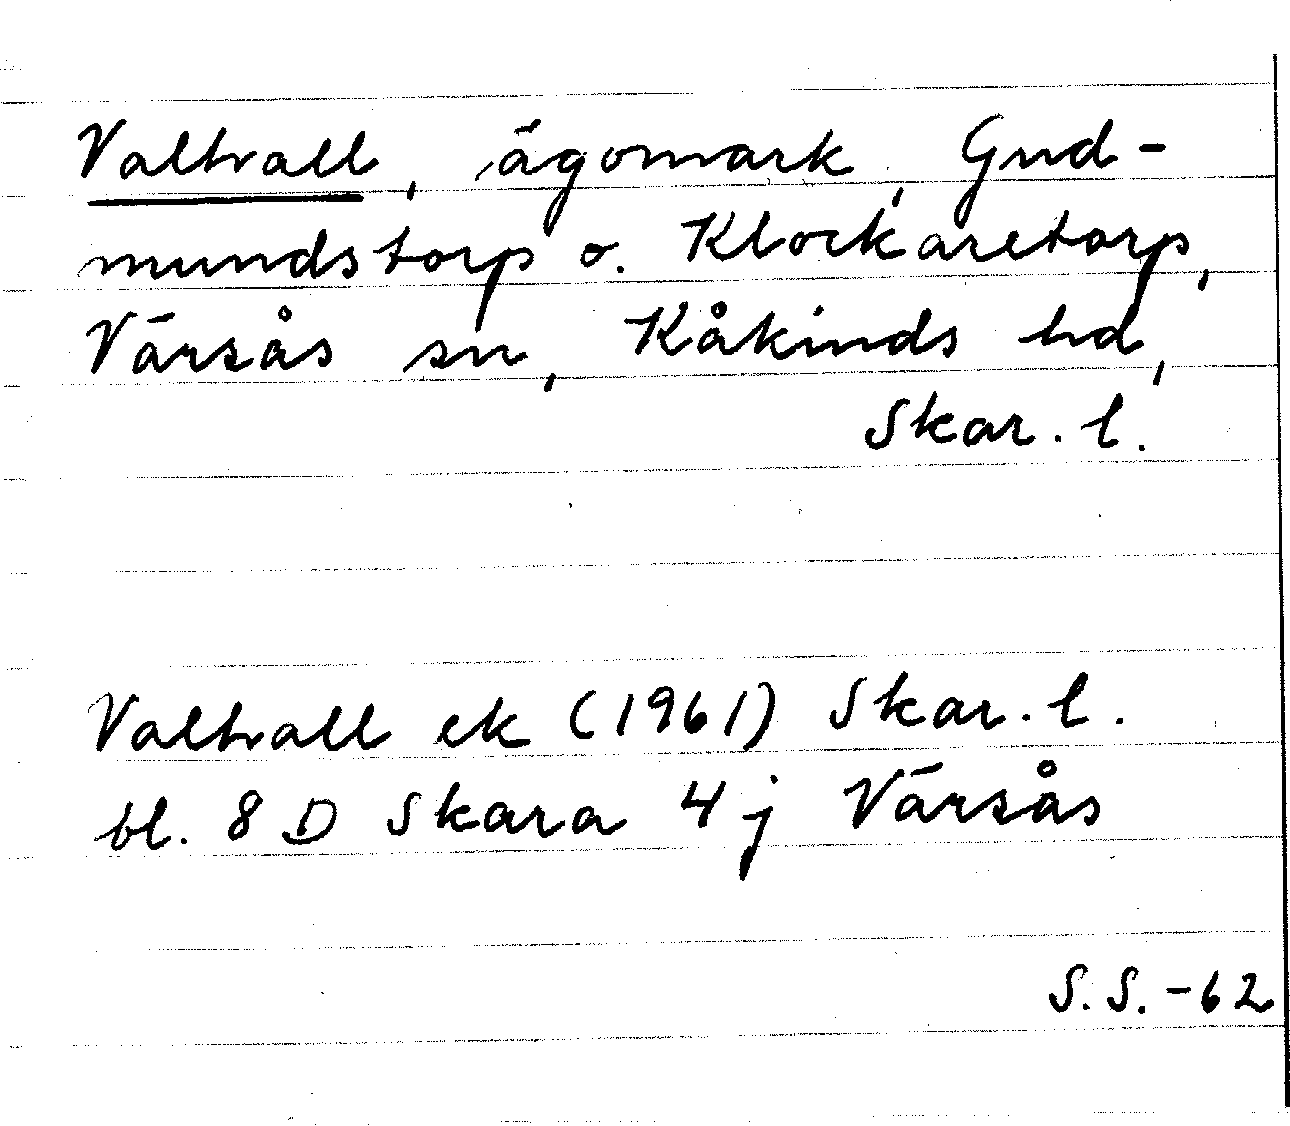 Valhall, ägomark, Gud-
mundstorp o. Klockaretorp,
Värsås sn, Kåkinds hd,
Skar. l.
Valhall ek (1961) Skar. l.
bl. 8 D Skara 4 j Värsås
S.S. -62